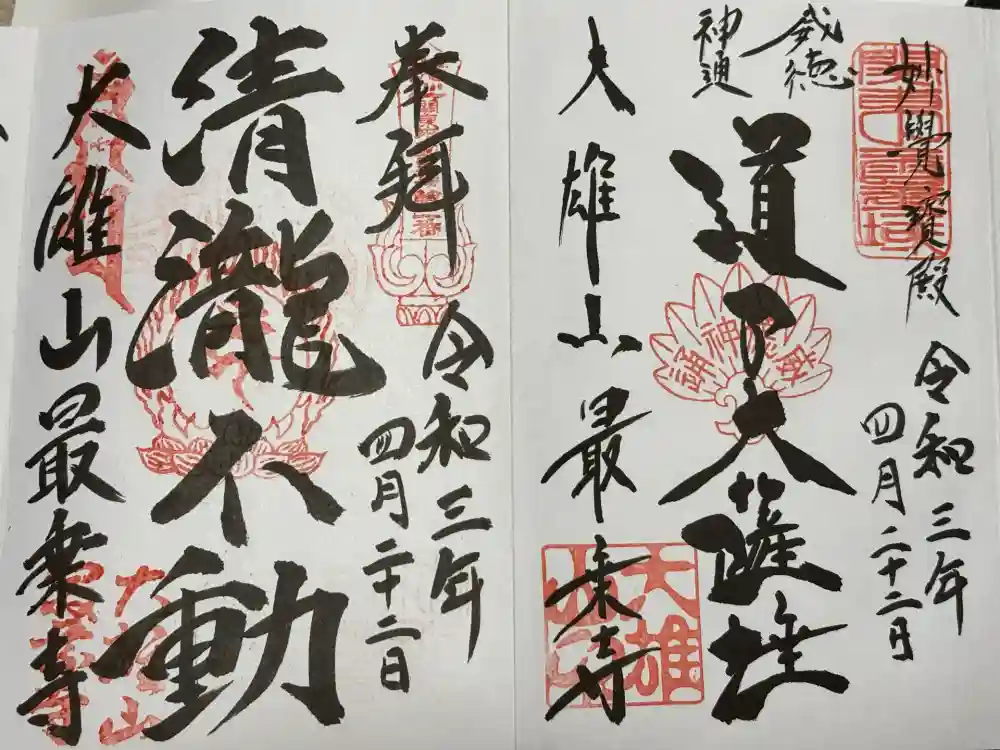 妙覺寳殿
令和三年
四月二十二日
威徳
神通
道了大薩埵
大雄山
最乗寺
奉拜
令和三年
四月二十二日
清瀧不動
大雄山最乗寺